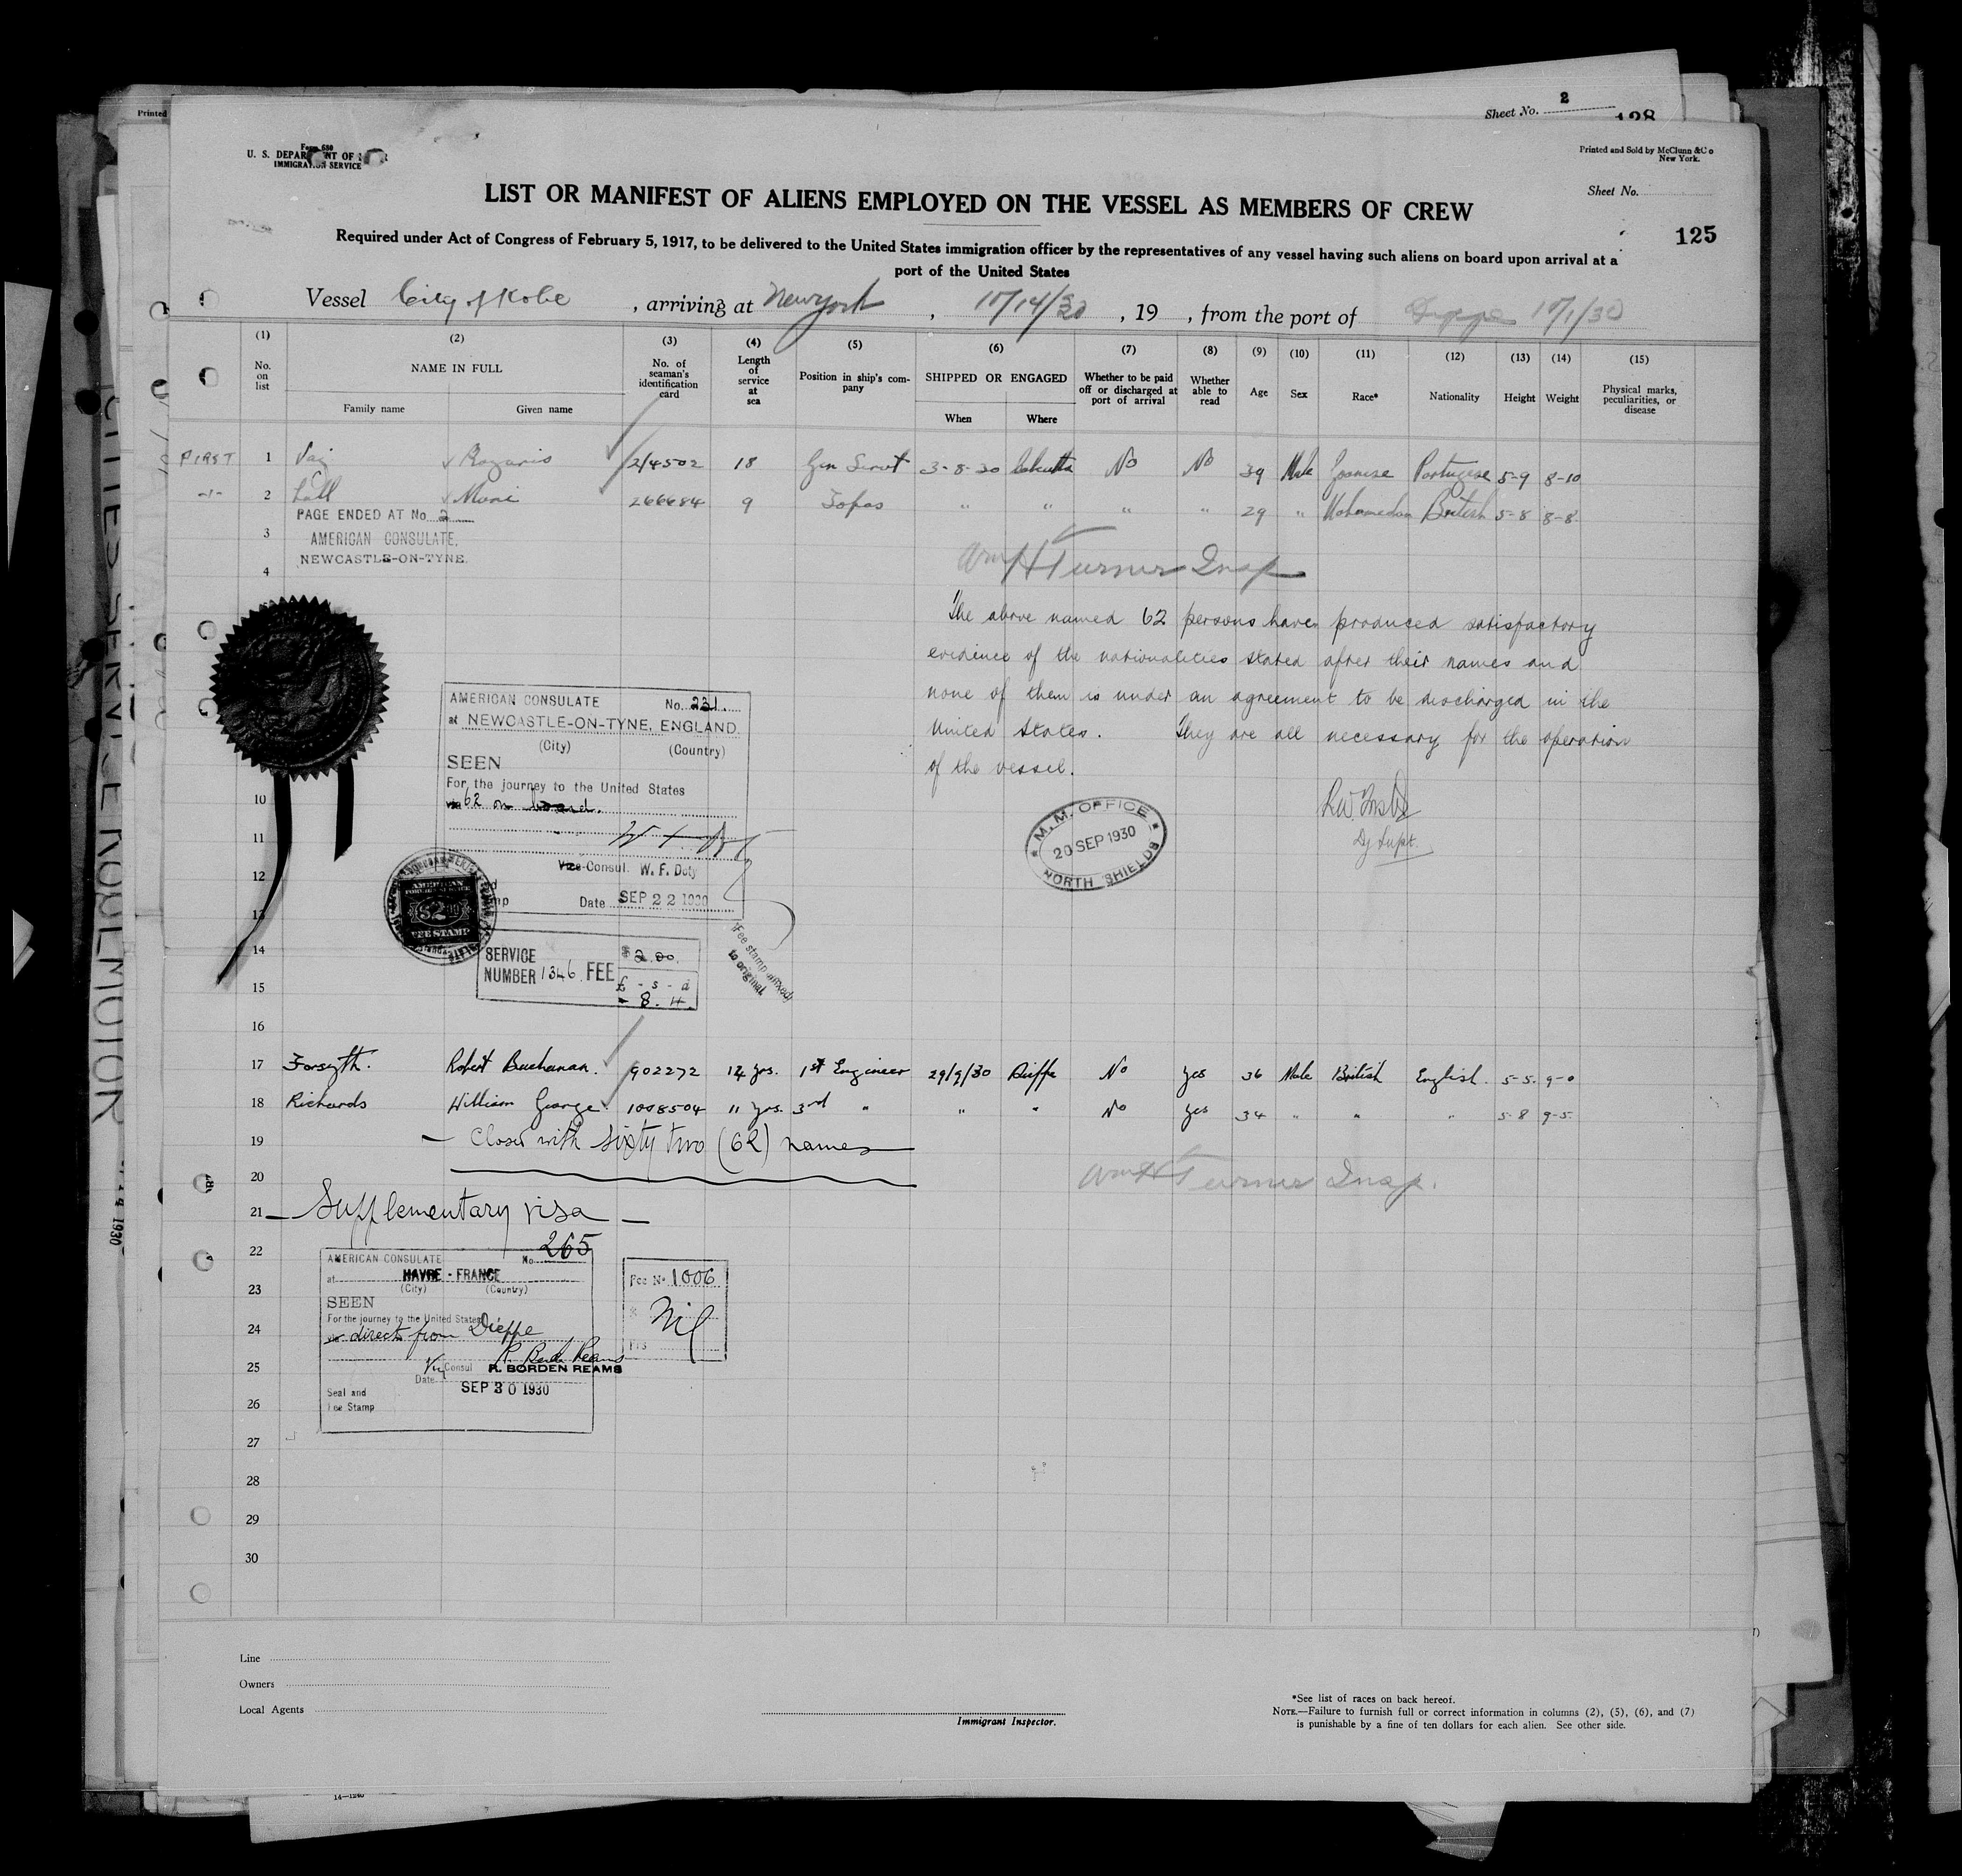 Printed
Sheet No. 2
128
Form 680
U. S. DEPARTMENT OF
IMMIGRATION SERVICE
Printed and Sold by McClunn & Co
New York.
Sheet No.
LIST OR MANIFEST OF ALIENS EMPLOYED ON THE VESSEL AS MEMBERS OF CREW
125
Required under Act of Congress of February 5, 1917, to be delivered to the United States immigration officer by the representatives of any vessel having such aliens on board upon arrival at a
port of the United States
Vessel City of Kobe , arriving at New York , 10/14/30 , 19 , from the port of Dieppe 10/1/30
(1) (2) (3) (4) (5) (6) (7) (8) (9) (10) (11) (12) (13) (14) (15)
No. on list NAME IN FULL No. of seaman's identification card Length of service at sea Position in ship's company SHIPPED OR ENGAGED Whether to be paid off or discharged at port of arrival Whether able to read Age Sex Race* Nationality Height Weight Physical marks, peculiarities, or disease
Family name Given name When Where
FIRST 1 Vaz Rozario 214502 18 Gen Servt 3-8-30 Calcutta No No 39 Male Goanese Portugese 5-9 8-10
-1- 2 Lall Muni 266684 9 Topas " " " " 29 " Mahomedan British 5-8 8-8
PAGE ENDED AT No. 2
3 AMERICAN CONSULATE,
NEWCASTLE-ON-TYNE.
4
Wm H Turner Insp
The above named 62 persons have produced satisfactory
evidence of the nationalities stated after their names and
none of them is under an agreement to be discharged in the
United States. They are all necessary for the operation
of the vessel.
Dy Supt.
M. M. OFFICE
20 SEP 1930
NORTH SHIELDS
AMERICAN CONSULATE No. 231.
at NEWCASTLE-ON-TYNE, ENGLAND.
(City) (Country)
SEEN
For the journey to the United States
via 62 on board.
Vice-Consul. W. F. Doty
Date SEP 22 1930
AMERICAN
FOREIGN SERVICE
$2.00
FEE STAMP
SERVICE
NUMBER 1346 FEE
$2.00.
£ - s - d
- 8. 4.
Fee stamp affixed
to original
10
11
12
13
14
15
16
17 Forsyth. Robert Buchanan. 902272 14 yrs. 1st Engineer 29/9/30 Dieppe No yes 36 Male British English. 5-5. 9-0
18 Richards William George 1008504 11 yrs. 3rd " " " No yes 34 " " " 5-8 9-5
19 — Closed with sixty two (62) names —
20
Wm H Turner Insp.
21 — Supplementary visa —
22
23
24
25
26
27
28
29
30
AMERICAN CONSULATE No. 265
at HAVRE - FRANCE
(City) (Country)
SEEN
For the journey to the United States
via direct from Dieppe
R. Borden Reams
Vice Consul R. BORDEN REAMS
Date SEP 30 1930
Seal and
Fee Stamp
Fee No 1006
$ Nil
Frs
Line
Owners
Local Agents
Immigrant Inspector.
*See list of races on back hereof.
NOTE.—Failure to furnish full or correct information in columns (2), (5), (6), and (7)
is punishable by a fine of ten dollars for each alien. See other side.
14—1240